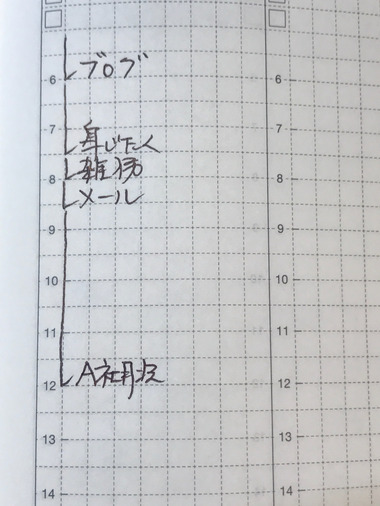 6 ブログ 6
7 7
身じたく
雑務
8 8
メール
9 9
10 10
11 11
A社月次
12 12
13 13
14 14